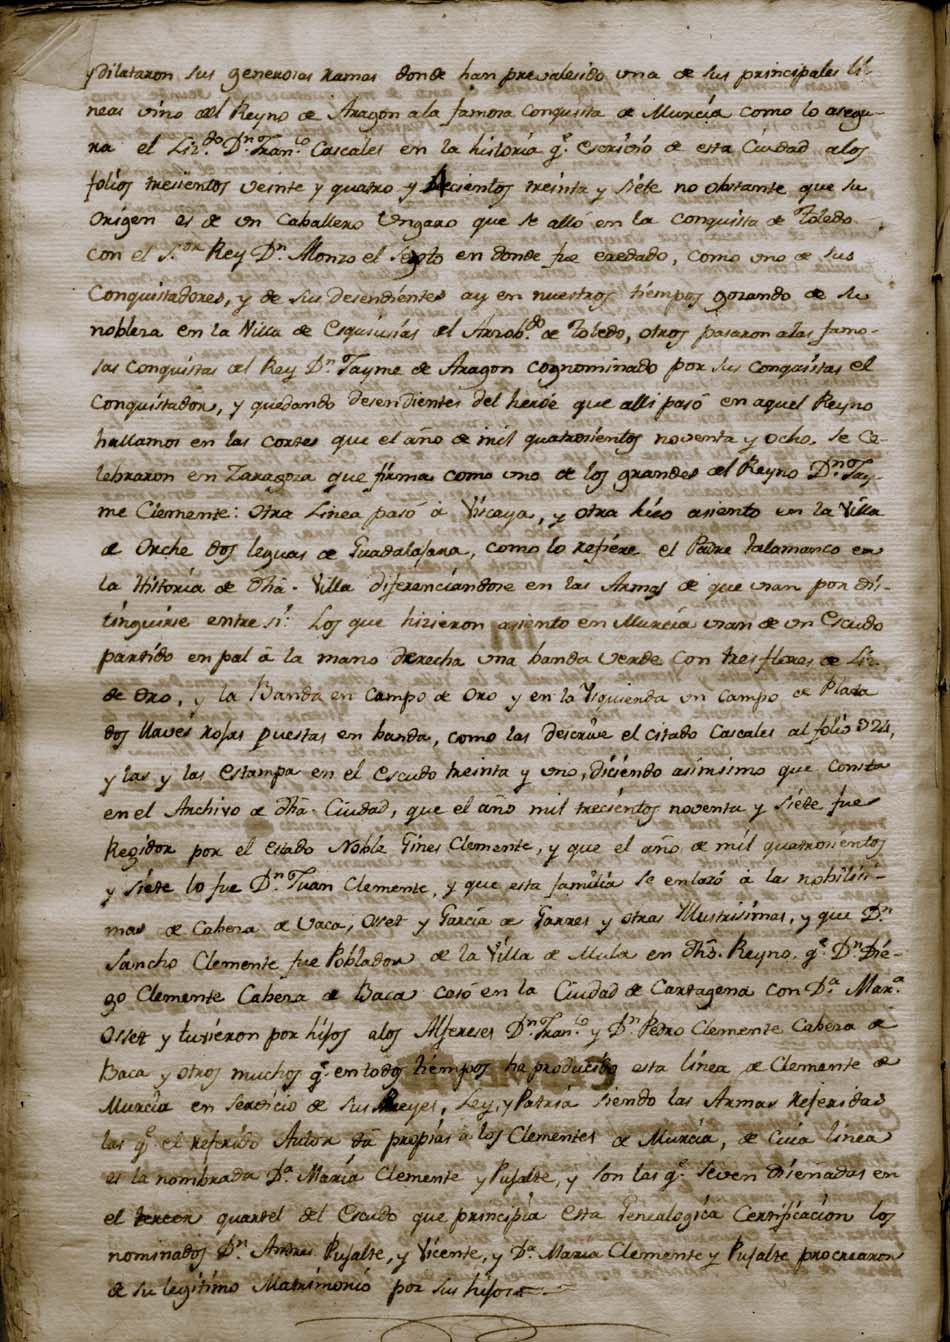 y dilataron sus generosas ramas donde han prevalesido una de sus principales li-
neas vino del Reyno de Aragon a la famosa Conquista de Murcia como lo asegu-
ra el Liz.do D.n Fran.co Cascales en la historia q.e escrivio de esta Ciudad a los
folios trescientos veinte y quatro y trecientos treinta y siete no obstante que su
Origen es de un Caballero Ungaro que se allo en la Conquista de Toledo
con el S.or Rey D.n Alonzo el Sexto en donde fue eredado, como uno de sus
Conquistadores, y de sus desendientes ay en nuestros tiempos gozando de su
nobleza en la Villa de Esquisuias del Arzob.do de Toledo, otros pasaron a las famo-
sas Conquistas del Rey D.n Jayme de Aragon cognominado por sus conquistas el
Conquistador, y quedando desendientes del heroe que alli pasó en aquel Reyno
hallamos en las cortes que el año de mil quatrosientos noventa y ocho, se ce-
lebraron en Zaragoza que firma como uno de los grandes del Reyno D.n Jay-
me Clemente: Otra Linea pasó á Viscaya, y otra hizo asiento en la Villa
de Orche dos leguas de Guadalajara, como lo refiere el Padre Talamanco en
la Historia de dhã. Villa diferenciandose en las Armas de que usan por dis-
tinguirse entre si: Los que hizieron asiento en Murcia usan de un Escudo
partido en pal â la mano derecha una banda verde con tres flores de Liz.
de Oro, y la Banda en Campo de Oro y en la Ysquienda un Campo de Plata
dos llaves rojas puestas en banda, como las descrive el citado Cascales al folio 324,
y las y las estampa en el escudo treinta y uno, diciendo asimismo que consta
en el Archivo de dhã. Ciudad, que el año mil trecientos noventa y siete fue
Regidor por el Estado Noble Gines Clemente, y que el año de mil quatrosientos
y siete lo fue D.n Juan Clemente, y que esta familia se enlazó á las nobilisi-
mas de Cabeza de Vaca, Osset y Garcia de Garres y otras Illustrisimas, y que D.n
Sancho Clemente fue Poblador de la Villa de Mula en dhõ. Reyno, q.e D.n Die-
go Clemente Cabeza de Baca casó en la Ciudad de Cartagena con D.a Mar.a
Osset y tuvieron por hijos a los Alfereses D.n Fran.co y D.n Pedro Clemente Cabeza de
Baca y otros muchos q.e en todos tiempos ha producido esta linea de Clemente de
Murcia en servicio de sus Reyes, Ley, y Patria siendo las Armas referidas
las q.e el referido Autor da propias a los Clementes de Murcia, de cuia linea
es la nombrada D.a Maria Clemente y Pujalte, y son las q.e se ven diseñadas en
el tercer quartel del Escudo que principia esta Genealogica Certificacion los
nominados D.n Andres Pujalte, y Vicente, y D.a Maria Clemente y Pujalte procrearon
de su legitimo Matrimonio por sus hijos a